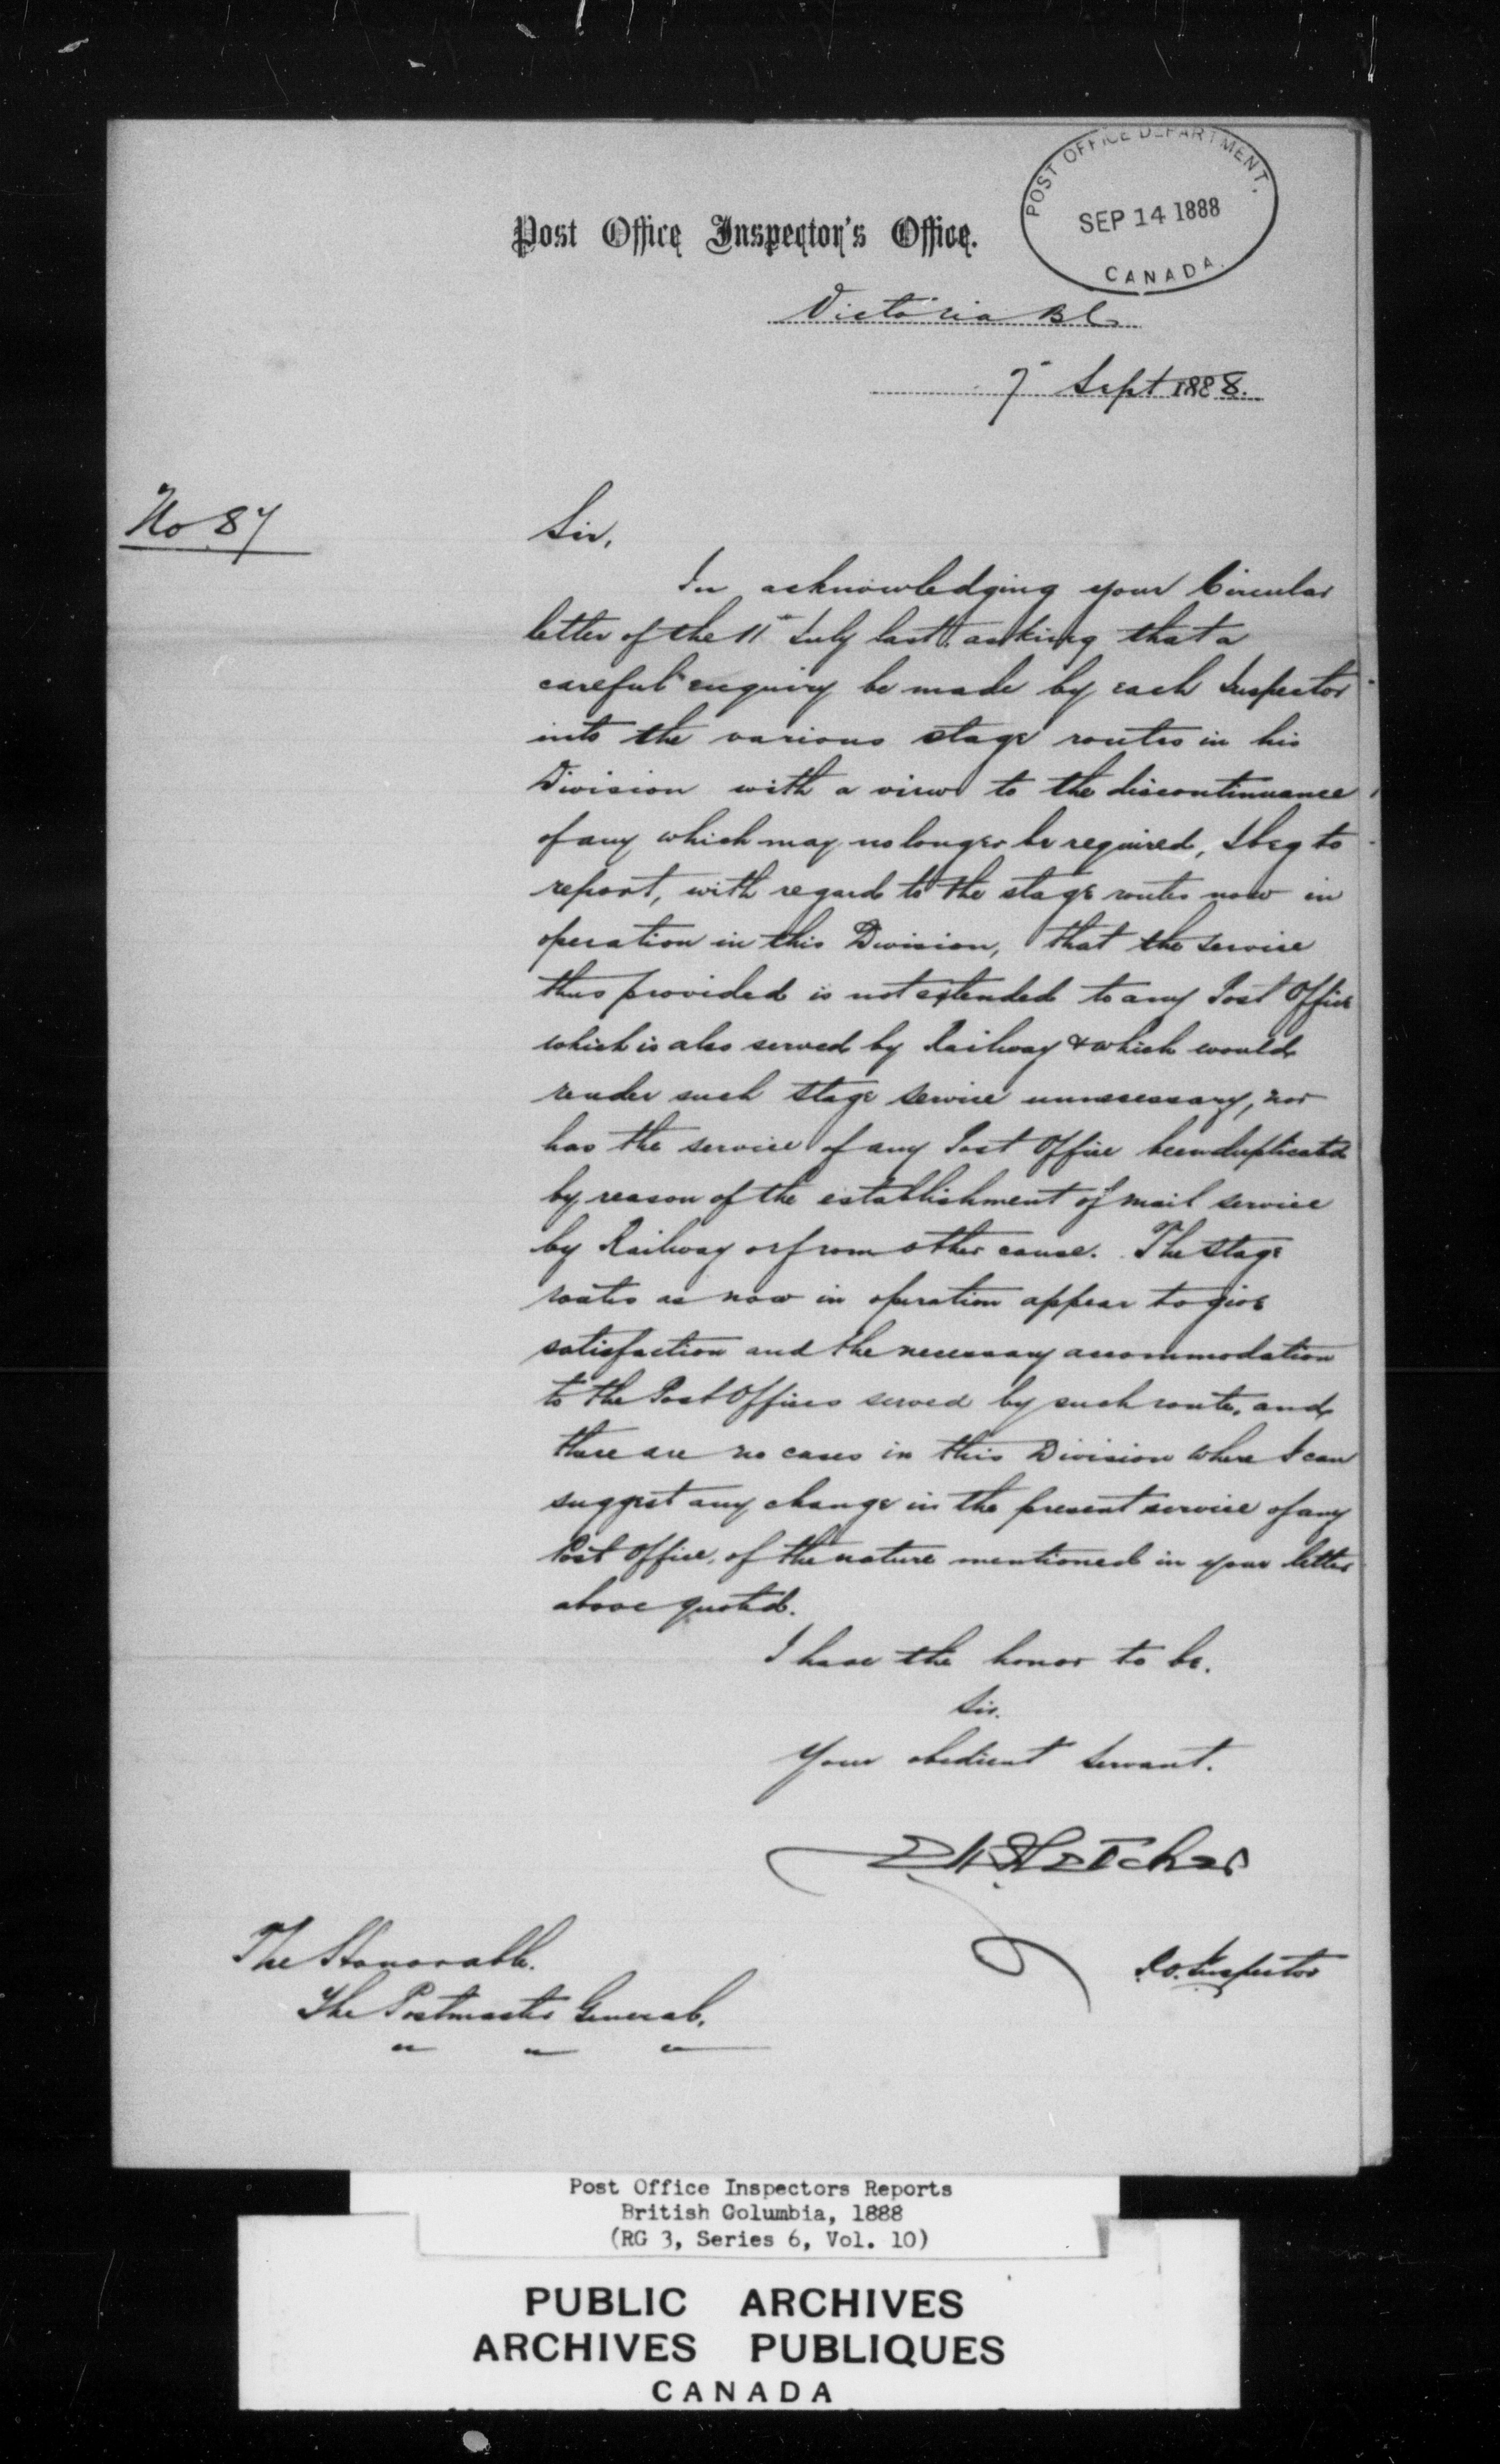 POST OFFICE DEPARTMENT.
SEP 14 1888
CANADA.
Post Office Inspector's Office.
Victoria BC
7 Sept 1888.
No 87
Sir,
In acknowledging your Circular
letter of the 11th July last, asking that a
careful enquiry be made by each Inspector
into the various stage routes in his
Division with a view to the discontinuance
of any which may no longer be required, I beg to
report, with regard to the stage routes now in
operation in this Division, that the service
thus provided is not extended to any Post Office
which is also served by Railway & which would
render such stage service unnecessary, nor
has the service of any Post Office been duplicated
by reason of the establishment of mail service
by Railway or from other cause. The stage
routes as now in operation appear to give
satisfaction and the necessary accommodation
to the Post Offices served by such route, and
there are no cases in this Division where I can
suggest any change in the present service of any
Post Office, of the nature mentioned in your letter
above quoted.
I have the honor to be.
Sir.
Your obedient servant.
Fletcher
P.O. Inspector
The Honorable.
The Postmaster General.
Post Office Inspectors Reports
British Columbia, 1888
(RG 3, Series 6, Vol. 10)
PUBLIC ARCHIVES
ARCHIVES PUBLIQUES
CANADA